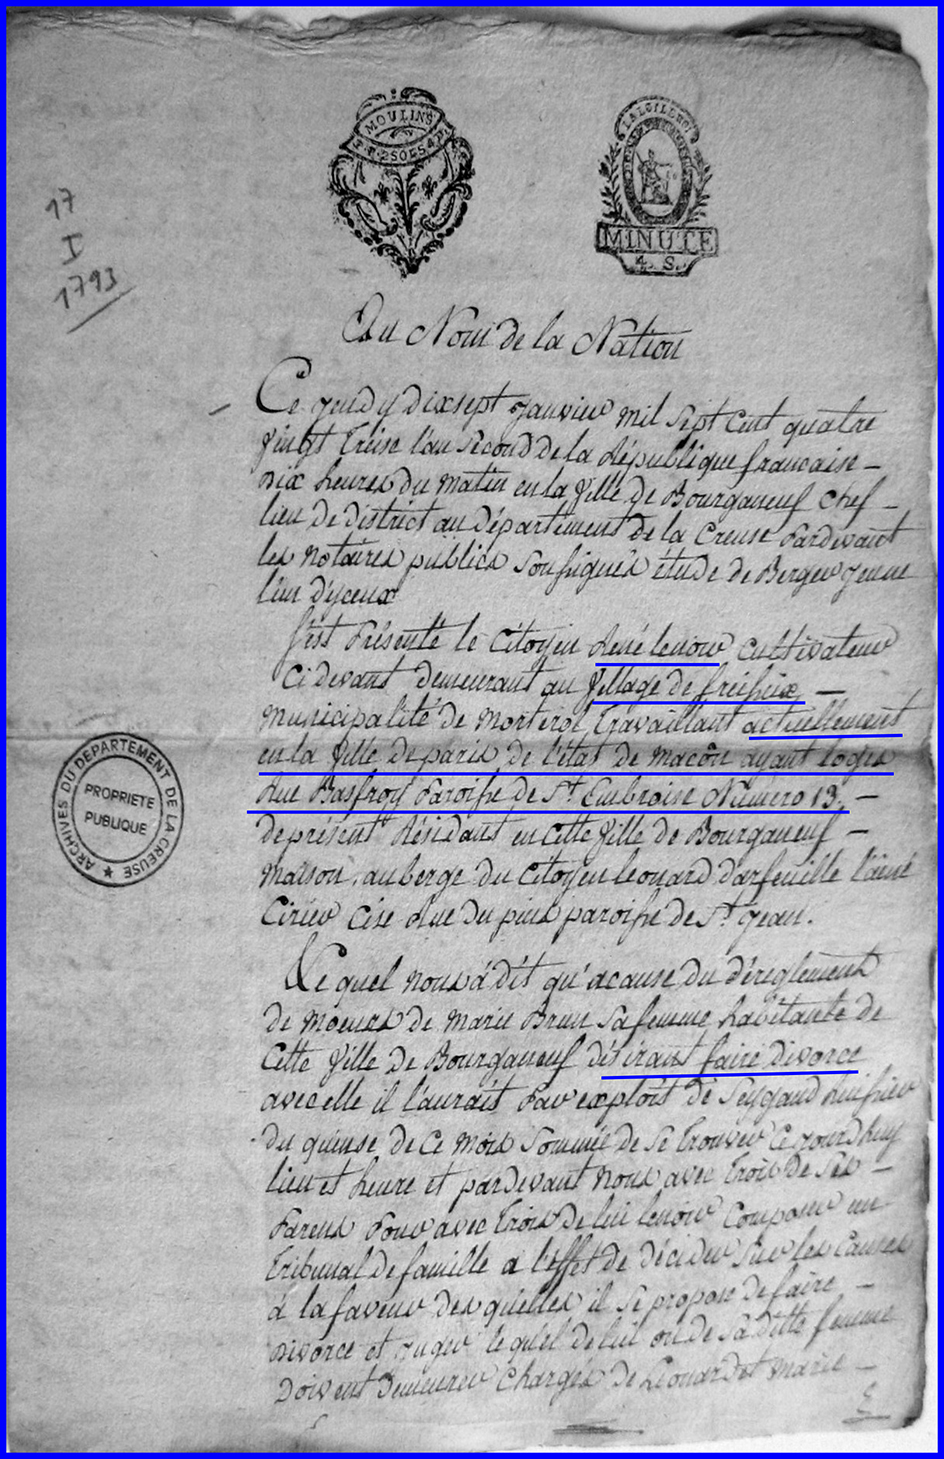 MOULINS
LA LOI LE ROI
MINUTE
4. S.
17
I
1793
Au Nom de la Nation
Ce jeudy dixsept janvier mil sept cent quatre
vingt treise l'an second de la République francaise —
dix heures du matin en la ville de Bourganeuf chef —
lieu de district au département de la Creuse pardevant
les notaires publics soussignés étude de Berger jeune
l'un d'yceux
s'est présenté le Citoyen René lenoir cultivateur
ci devant demeurant au village de freisseix —
municipalité de morterol travaillant actuellement
en la ville de paris de l'état de macôn ayant loges
Rue Basfroy paroisse de St. Embroise Numero 13. —
de présent Résidant en cette ville de Bourganeuf —
maison, auberge du citoyen leonard d'arfeuille l'ainé
Cirier cise Rue du puis paroisse de St. jean.
Le quel nous à dit qu'acause du déreglement
de moeurs de marie Brun sa femme, habitante de
cette ville de Bourganeuf désirant faire divorce
avec elle il l'aurait par exploit de Seygaud huissier
du quinse de ce mois sommée de se trouver ce jourdhuy
lieu et heure et pardevant nous avec trois de ses —
parens pour avec trois de lui lenoir composer un
tribunal de famille a l'effet de décider sur les causes
à la faveur des quelles il se propose de faire —
divorce et juger le quel de lui ou de sa ditte femme
doivent demeurer chargés de Leonard et marie —
ARCHIVES DU DEPARTEMENT DE LA CREUSE
PROPRIETE
PUBLIQUE